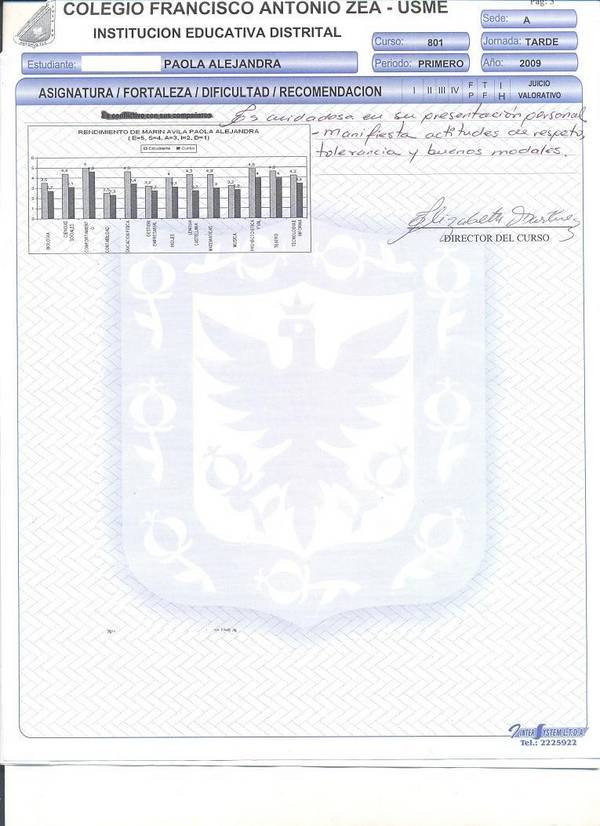 COLEGIO FRANCISCO ANTONIO ZEA - USME
Pag. 3
INSTITUCION EDUCATIVA DISTRITAL
Sede: A
Curso: 801
Jornada: TARDE
Estudiante: PAOLA ALEJANDRA
Periodo: PRIMERO
Año: 2009
ASIGNATURA / FORTALEZA / DIFICULTAD / RECOMENDACION
I II III IV F P T F I H JUICIO VALORATIVO
Es cuidadosa en su presentación personal
- Manifiesta actitudes de respeto,
tolerancia y buenos modales.
RENDIMIENTO DE MARIN AVILA PAOLA ALEJANDRA
( E=5, S=4, A=3, I=2, D=1)
Estudiante Curso
BIOLOGIA
CIENCIAS SOCIALES
COMPORTAMIENTO
CONTABILIDAD
EDUCACION FISICA
GESTION EMPRESARIAL
INGLES
LENGUA CASTELLANA
MATEMATICAS
MUSICA
TEATRO
TECNOLOGIA E INFORMA
Elizabeth Martinez
DIRECTOR DEL CURSO
INTER SYSTEM L.T.D.A
Tel.: 2225922